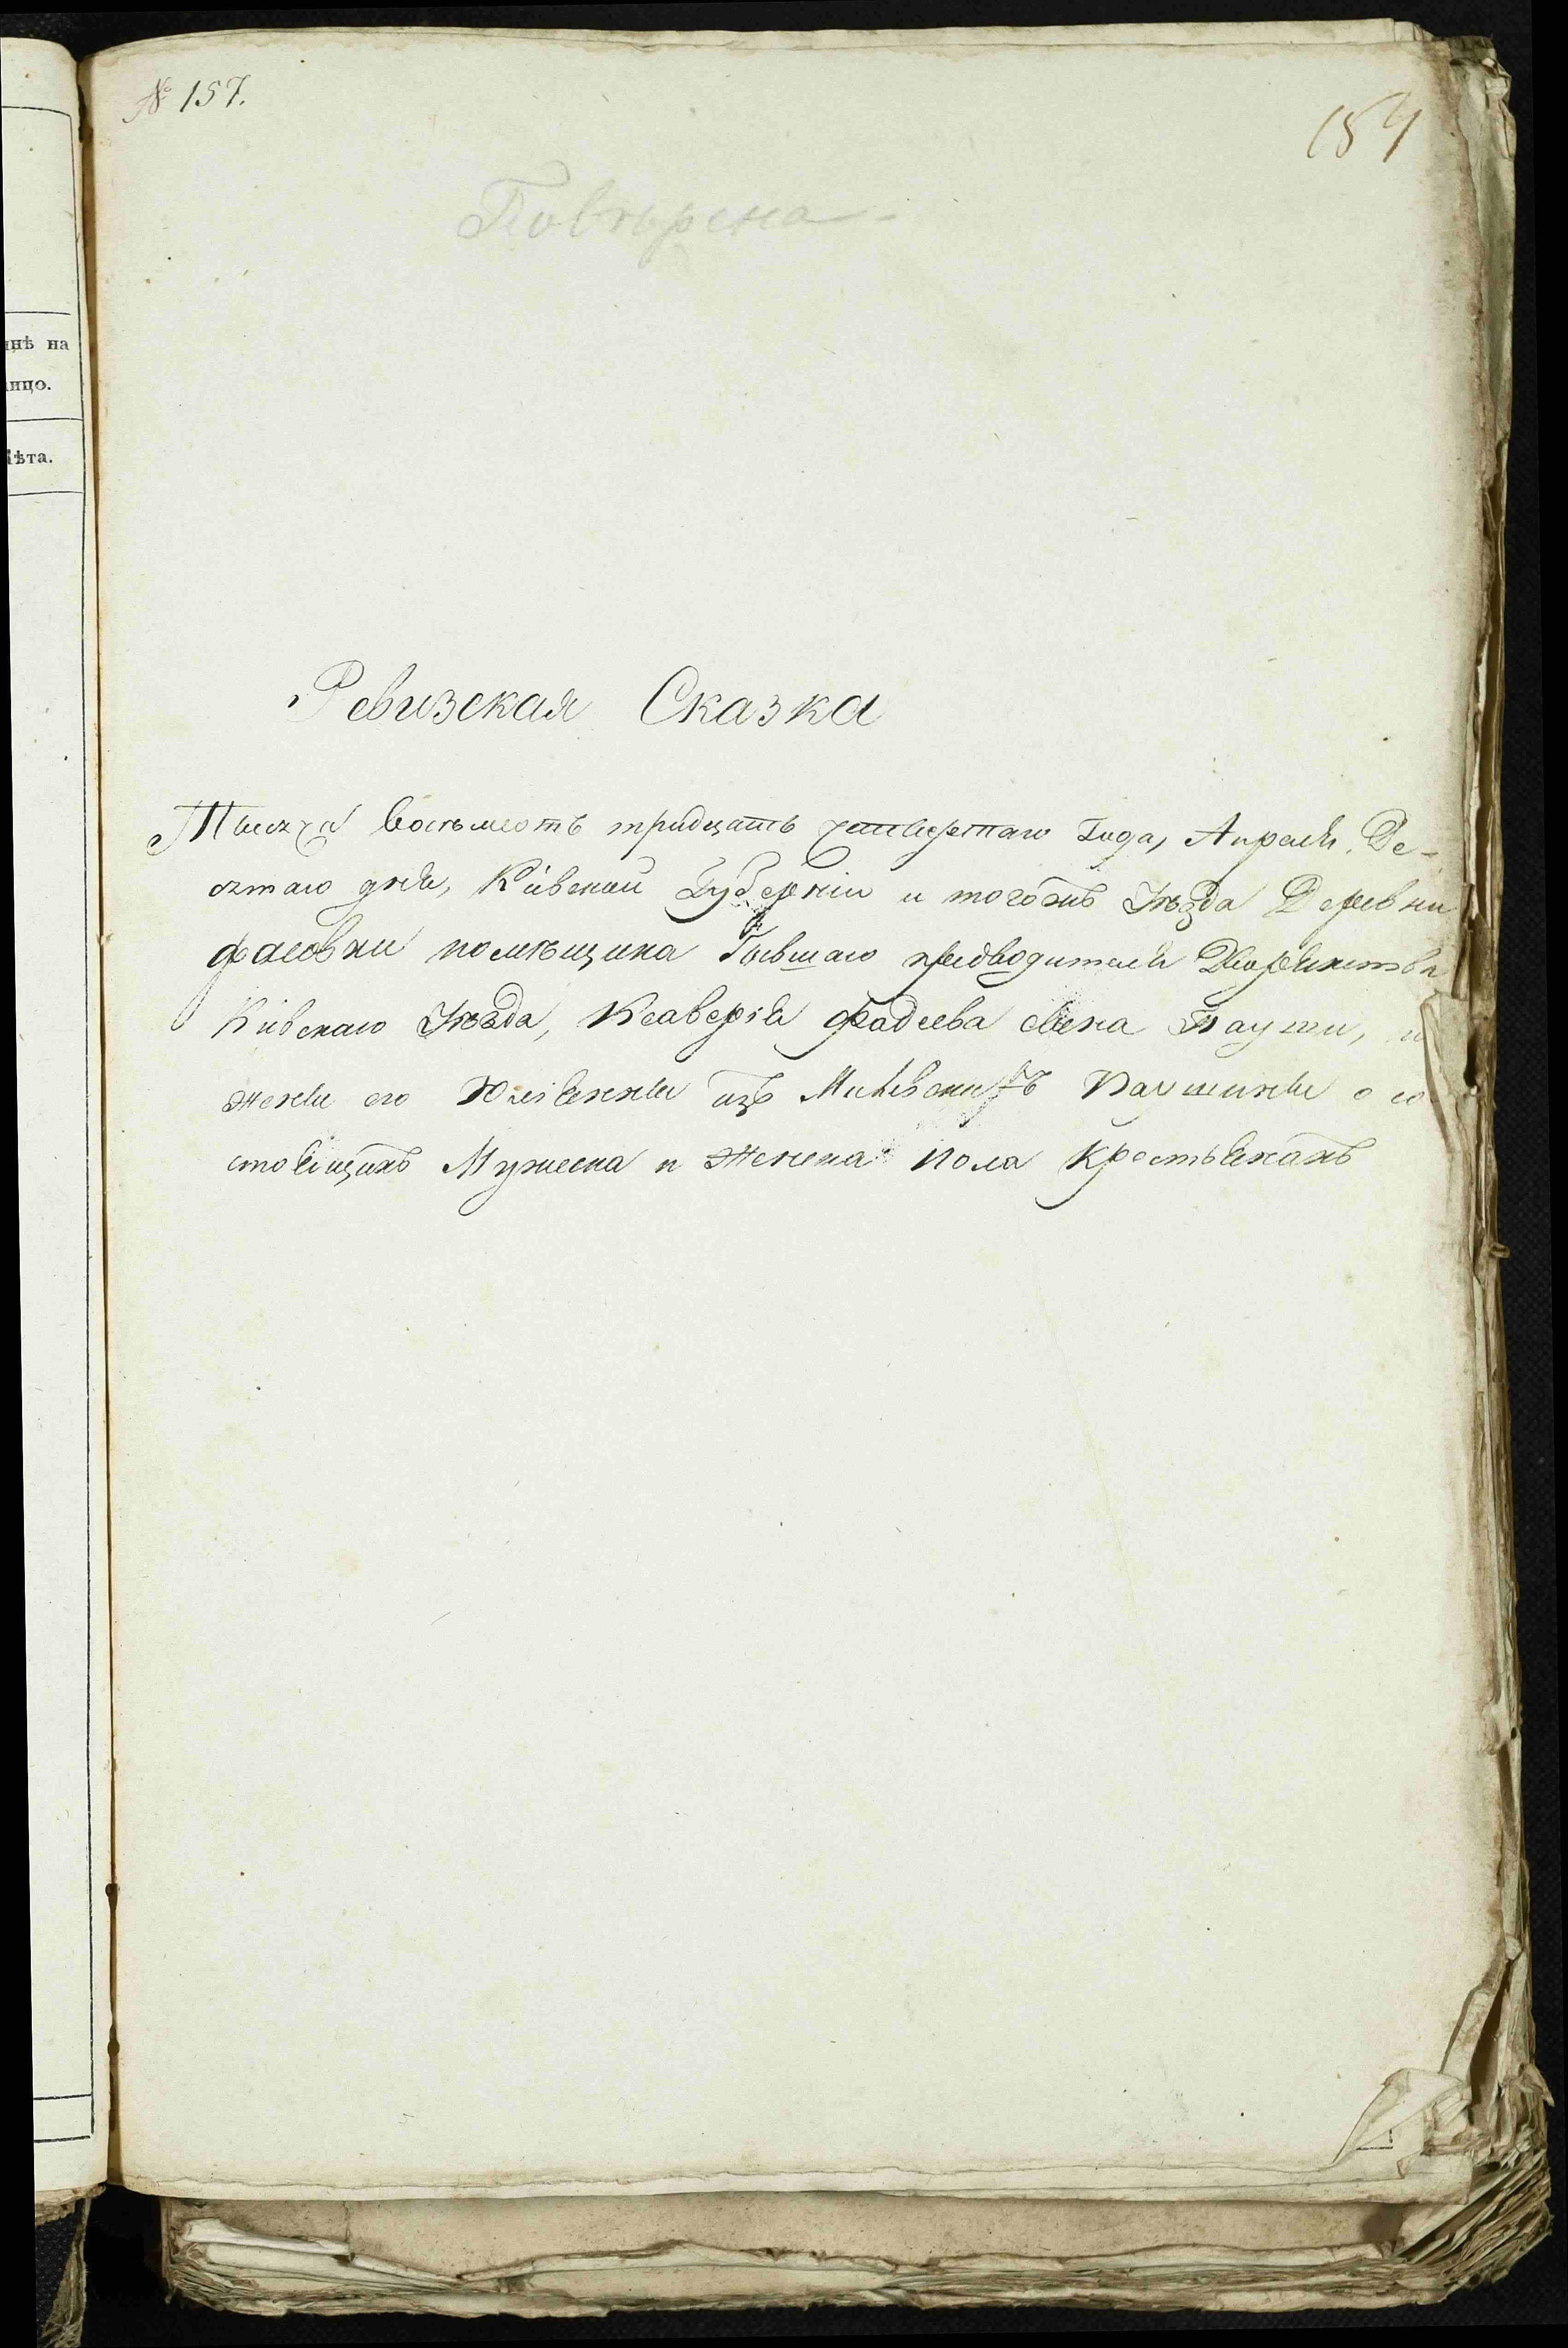 № 157.
154
Повѣрена
ннѣ на
лицо.
Лѣта.
Ревизская Сказка
Тысяча восемьсотъ тридцать четвертаго Года, Апрѣля Де-
сятаго дня, Кіевской Губерніи и тогожъ Уѣзда Деревни
Фасовки помѣщика Бывшаго предводителя Дворянства
Кіевскаго Уѣзда, Ксаверія Фадеева сына Пауши, и
жены его Юліянны изъ Паушины о со
стоящихъ Мужеска и Женска пола крестьянахъ